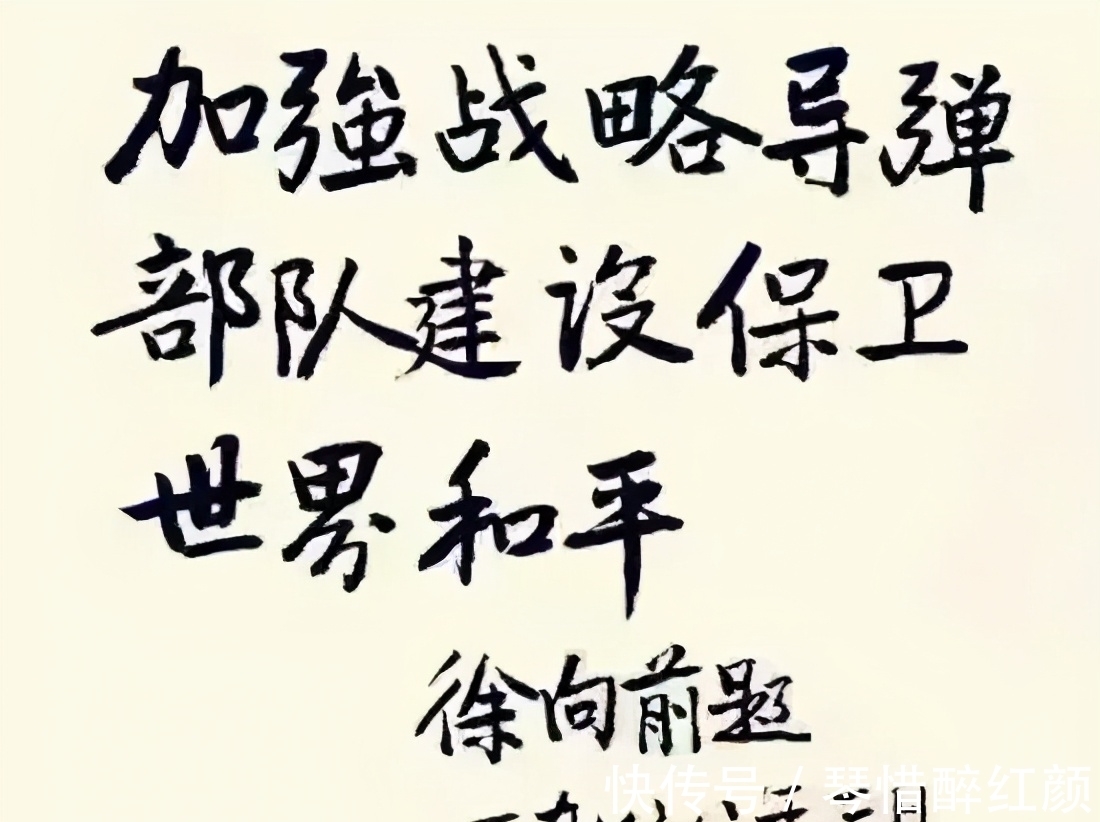 加強战略导弹
部队建设保卫
世界和平
徐向前题
快传号 / 琴惜醉红颜